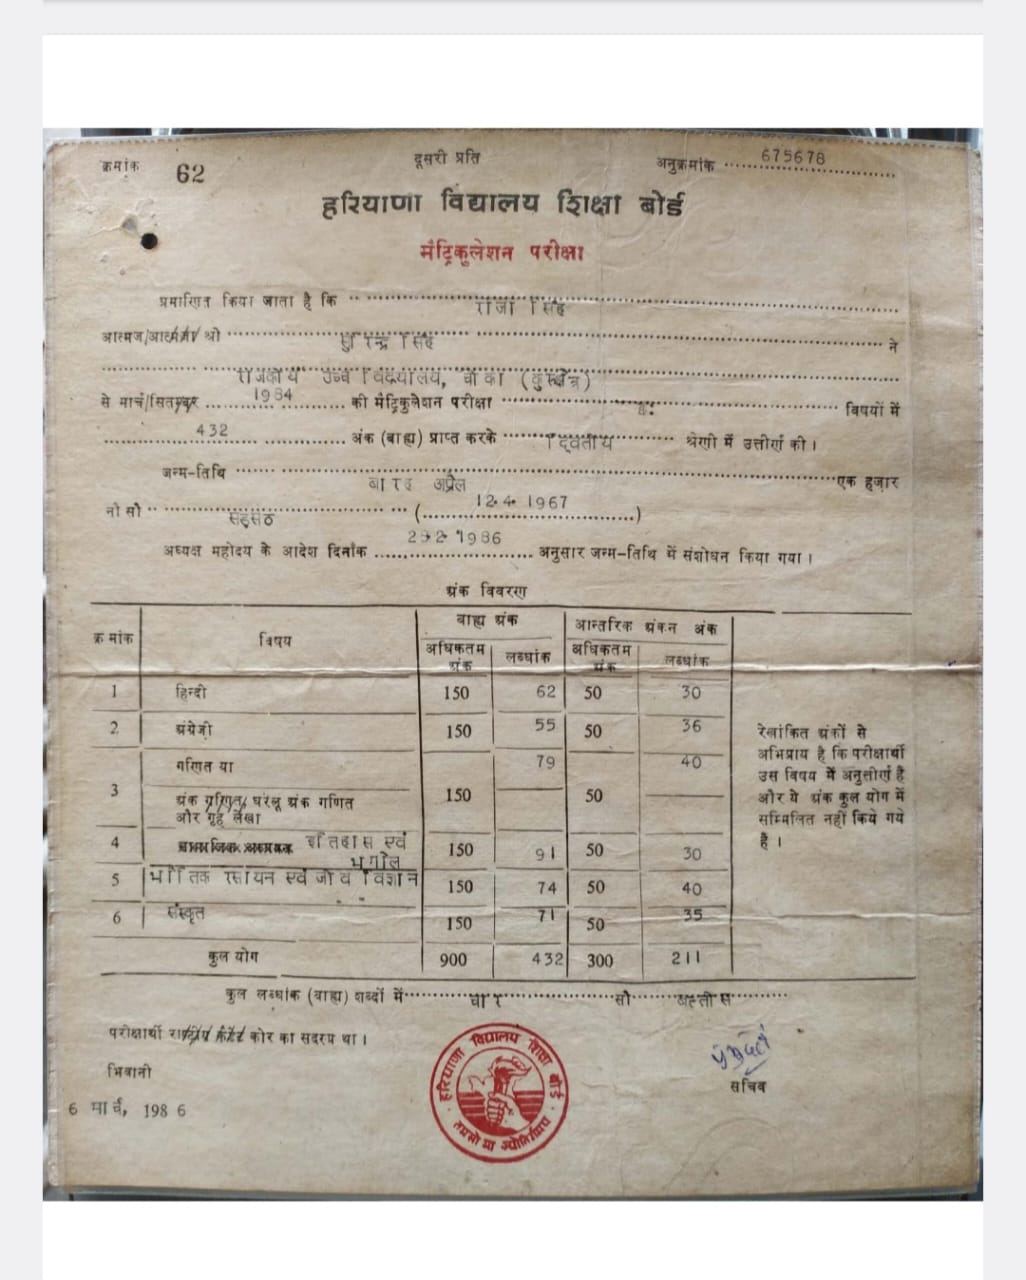 क्रमांक 62 दूसरी प्रति अनुक्रमांक 675678
हरियाणा विद्यालय शिक्षा बोर्ड
मैट्रिकुलेशन परीक्षा
प्रमाणित किया जाता है कि राजा सिंह
आत्मज/आत्मजा श्री सुरेन्द्र सिंह ने
राजकीय उच्च विद्यालय, (कुरुक्षेत्र)
से मार्च/सितम्बर 1984 की मैट्रिकुलेशन परीक्षा छः विषयों में
432 अंक (बाह्य) प्राप्त करके द्वितीय श्रेणी में उत्तीर्ण की।
जन्म-तिथि बारह अप्रैल एक हज़ार
नौ सौ सड़सठ (12.4.1967)
अध्यक्ष महोदय के आदेश दिनाँक 1986 अनुसार जन्म-तिथि में संशोधन किया गया।
अंक विवरण
क्रमांक विषय बाह्य अंक आन्तरिक अंकन अंक
अधिकतम अंक लब्धांक अधिकतम अंक लब्धांक
1 हिन्दी 150 62 50 30
2 अंग्रेजी 150 55 50 36
3 गणित या 79 40
अंक गणित, घरेलू अंक गणित 150 50
और गृह लेखा
4 इतिहास एवं भूगोल 150 91 50 30
5 भौतिक रसायन एवं जीव विज्ञान 150 74 50 40
6 संस्कृत 150 71 50 35
कुल योग 900 432 300 211
रेखांकित अंकों से
अभिप्राय है कि परीक्षार्थी
उस विषय में अनुत्तीर्ण है
और ये अंक कुल योग में
सम्मिलित नहीं किये गये
हैं।
कुल लब्धांक (बाह्य) शब्दों में चार सौ बत्तीस
परीक्षार्थी राष्ट्रीय कैडेट कोर का सदस्य था।
भिवानी
6 मार्च, 1986
हरियाणा विद्यालय शिक्षा बोर्ड
तमसो मा ज्योतिर्गमय
सचिव